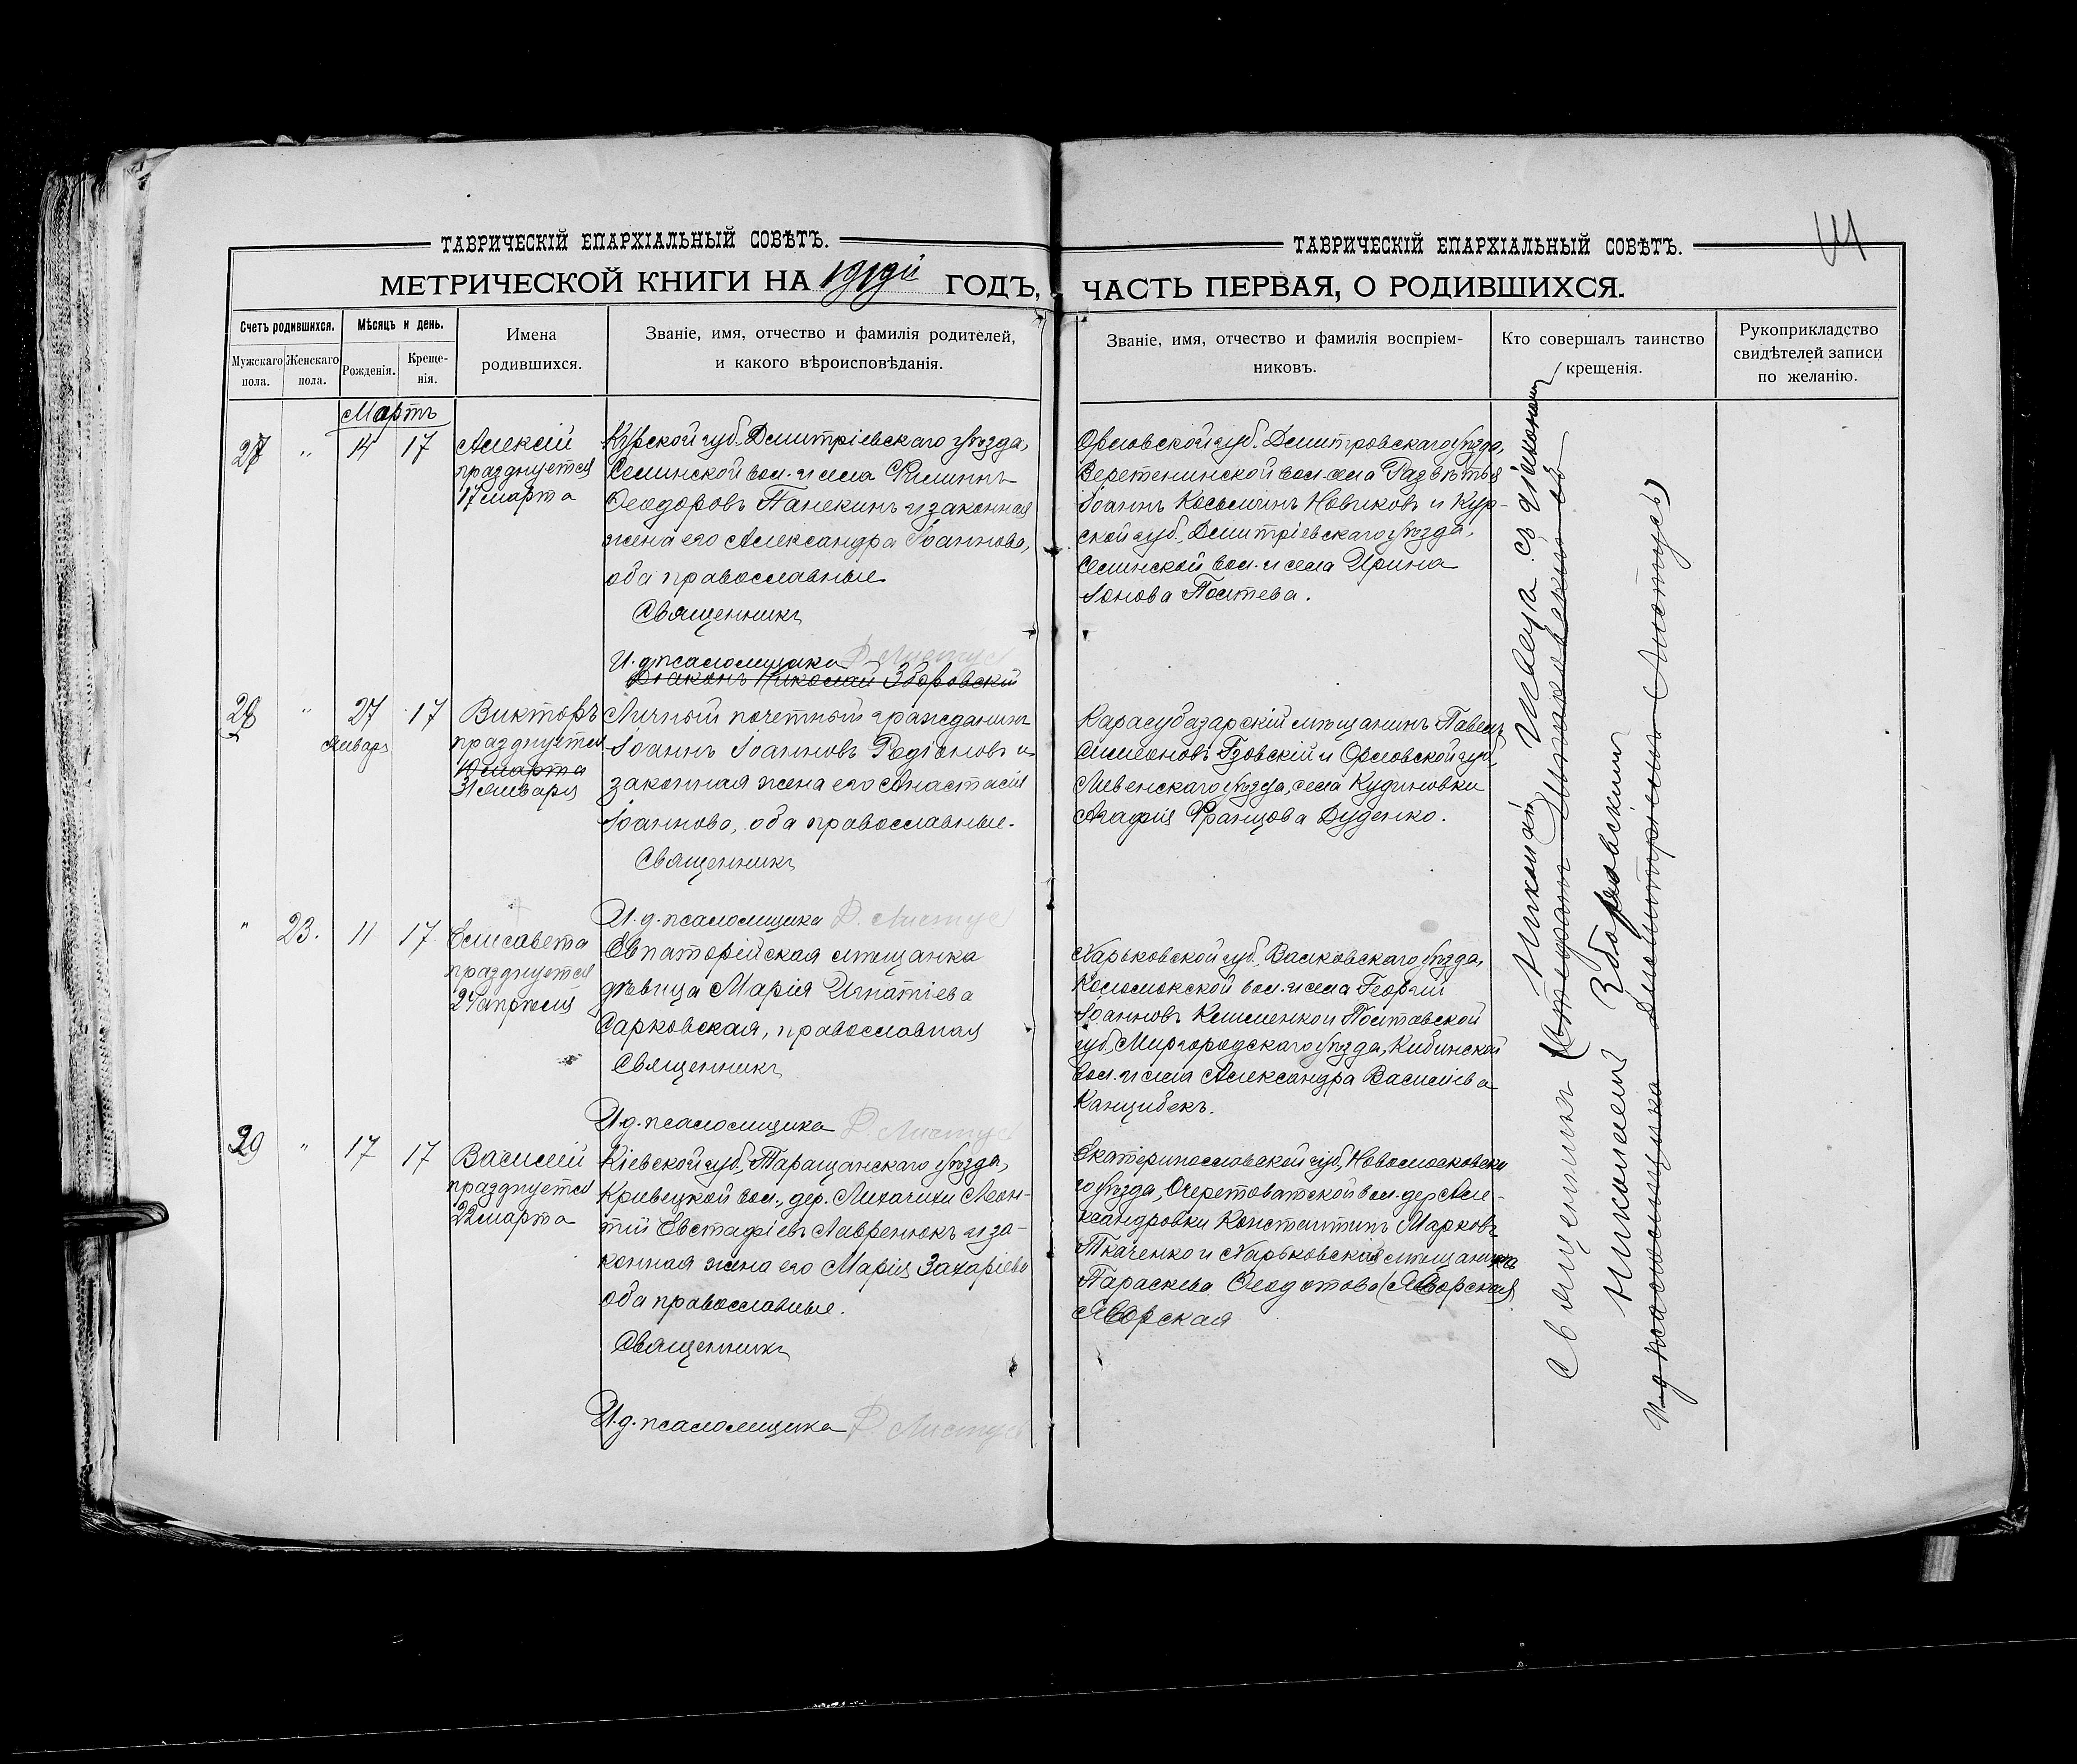 ТАВРИЧЕСКІЙ ЕПАРХІАЛЬНЫЙ СОВѢТЪ.
МЕТРИЧЕСКОЙ КНИГИ НА 1919й ГОДЪ,
Счетъ родившихся.
Мѣсяцъ и день.
Имена
родившихся.
Званіе, имя, отчество и фамилія родителей,
и какого вѣроисповѣданія.
Мужскаго
пола.
Женскаго
пола.
Рожденія.
Креще-
нія.
Мартъ
27 " 14 17
Алексій
празднуется
17 марта
Курской губ. Дмитріевскаго уѣзда,
Селинской вол. и села Филиппъ
Феодоровъ Панекинъ и законная
жена его Александра Іоаннова,
оба православные
Священникъ
И. д. псаломщика
Діаконъ Николай Зборовскій
28 " 27 17
Января
Викторъ
празднуется
10 марта
31 января
Личный почетный гражданинъ
Іоаннъ Іоанновъ Родіоновъ и
законная жена его Анастасія
Іоаннова, оба православные.
Священникъ
И. д. псаломщика Д. Листусъ
" 23. 11 17
Елисавета
празднуется
24 апрѣля
Евпаторійская мѣщанка
дѣвица Марія Игнатіева
Сарковская, православная
Священникъ
И. д. псаломщика Д. Листусъ
29 " 17 17
Василій
празднуется
22 марта
Кіевской губ., Таращанскаго уѣзда,
Кривецкой вол., дер. Лихачихи Леон-
тій Евстафіевъ Лавренюкъ и за-
конная жена его Марія Захаріева
оба православные.
Священникъ
И. д. псаломщика Д. Листусъ
ТАВРИЧЕСКІЙ ЕПАРХІАЛЬНЫЙ СОВѢТЪ.
ЧАСТЬ ПЕРВАЯ, О РОДИВШИХСЯ.
Званіе, имя, отчество и фамилія воспріем-
никовъ.
Кто совершалъ таинство
крещенія.
Рукоприкладство
свидѣтелей записи
по желанію.
Орловской губ. Дмитровскаго уѣзда,
Веретенинской вол. села Развѣтья
Іоаннъ Косьминъ Новиковъ и Кур-
ской губ., Дмитріевскаго уѣзда,
Селинской вол. и села Ирина
Іонова Полтева.
Карасубазарскій мѣщанинъ Павелъ
Симеоновъ Гзовскій и Орловской губ.,
Ливенскаго уѣзда, села Кудиновки
Агафія Францова Дуденко.
Харьковской губ., Валковскаго уѣзда,
Коломокской вол. и села Георгій
Іоанновъ Клименко и Полтавской
губ., Миргородскаго уѣзда, Кибинской
вол. и села Александра Василіева
Канцибекъ.
Екатеринославской губ., Новомосковска
го уѣзда, Очеретоватской вол. дер. Але-
ксандровки Константинъ Марковъ
Ткаченко и Харьковская мѣщанка
Параскева Феодотова (Яворская)
Яворская
Священникъ Николай съ діакономъ
Николаемъ Зборовскимъ
И. д. псаломщика Димитріемъ (Листусъ)